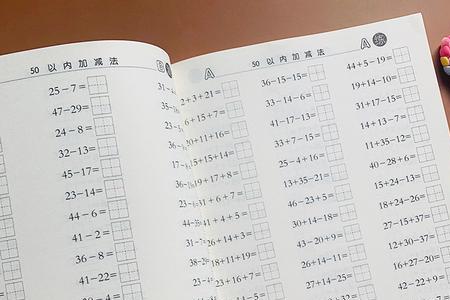 50 以内加减法
B
25-7=
47-29=
24-8=
32-13=
45-17=
23-14=
44-6=
41-2=
36-8=
41-22=
A
50 以内加减法
A 练
2+3+21=
6+15+7=
20+11+16=
15+15+14=
19+17+8=
31+6+7=
41+4+5=
26+14+3=
18+11+19=
23+16+7=
36-15-15=
33-14-6=
41-17-13=
33+7-15=
25-4+16=
13+35-21=
46-23+5=
30+14-18=
43-20+9=
26+11-27=
27+14-25=
44+5-19=
19+14-10=
31+17-15=
14+13-7=
11+35-12=
40-28+6=
15+24-13=
18+24-26=
27-15+37=
12+30-37=
16+27-20=
42-22+9=